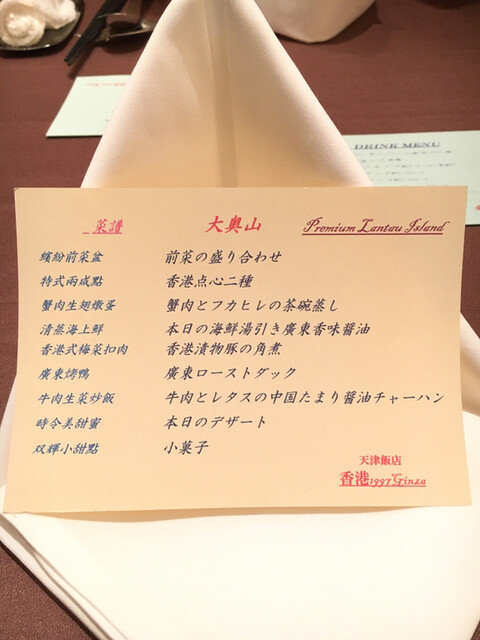 DRINK MENU
菜譜 大奥山 Premium Lantau Island
繽紛前菜盆 前菜の盛り合わせ
特式兩咸點 香港点心二種
蟹肉生翅燉蛋 蟹肉とフカヒレの茶碗蒸し
清蒸海上鮮 本日の海鮮湯引き廣東香味醤油
香港式梅菜扣肉 香港漬物豚の角煮
廣東烤鴨 廣東ローストダック
牛肉生菜炒飯 牛肉とレタスの中国たまり醤油チャーハン
時令美甜蜜 本日のデザート
双輝小甜點 小菓子
天津飯店
香港1997Ginza